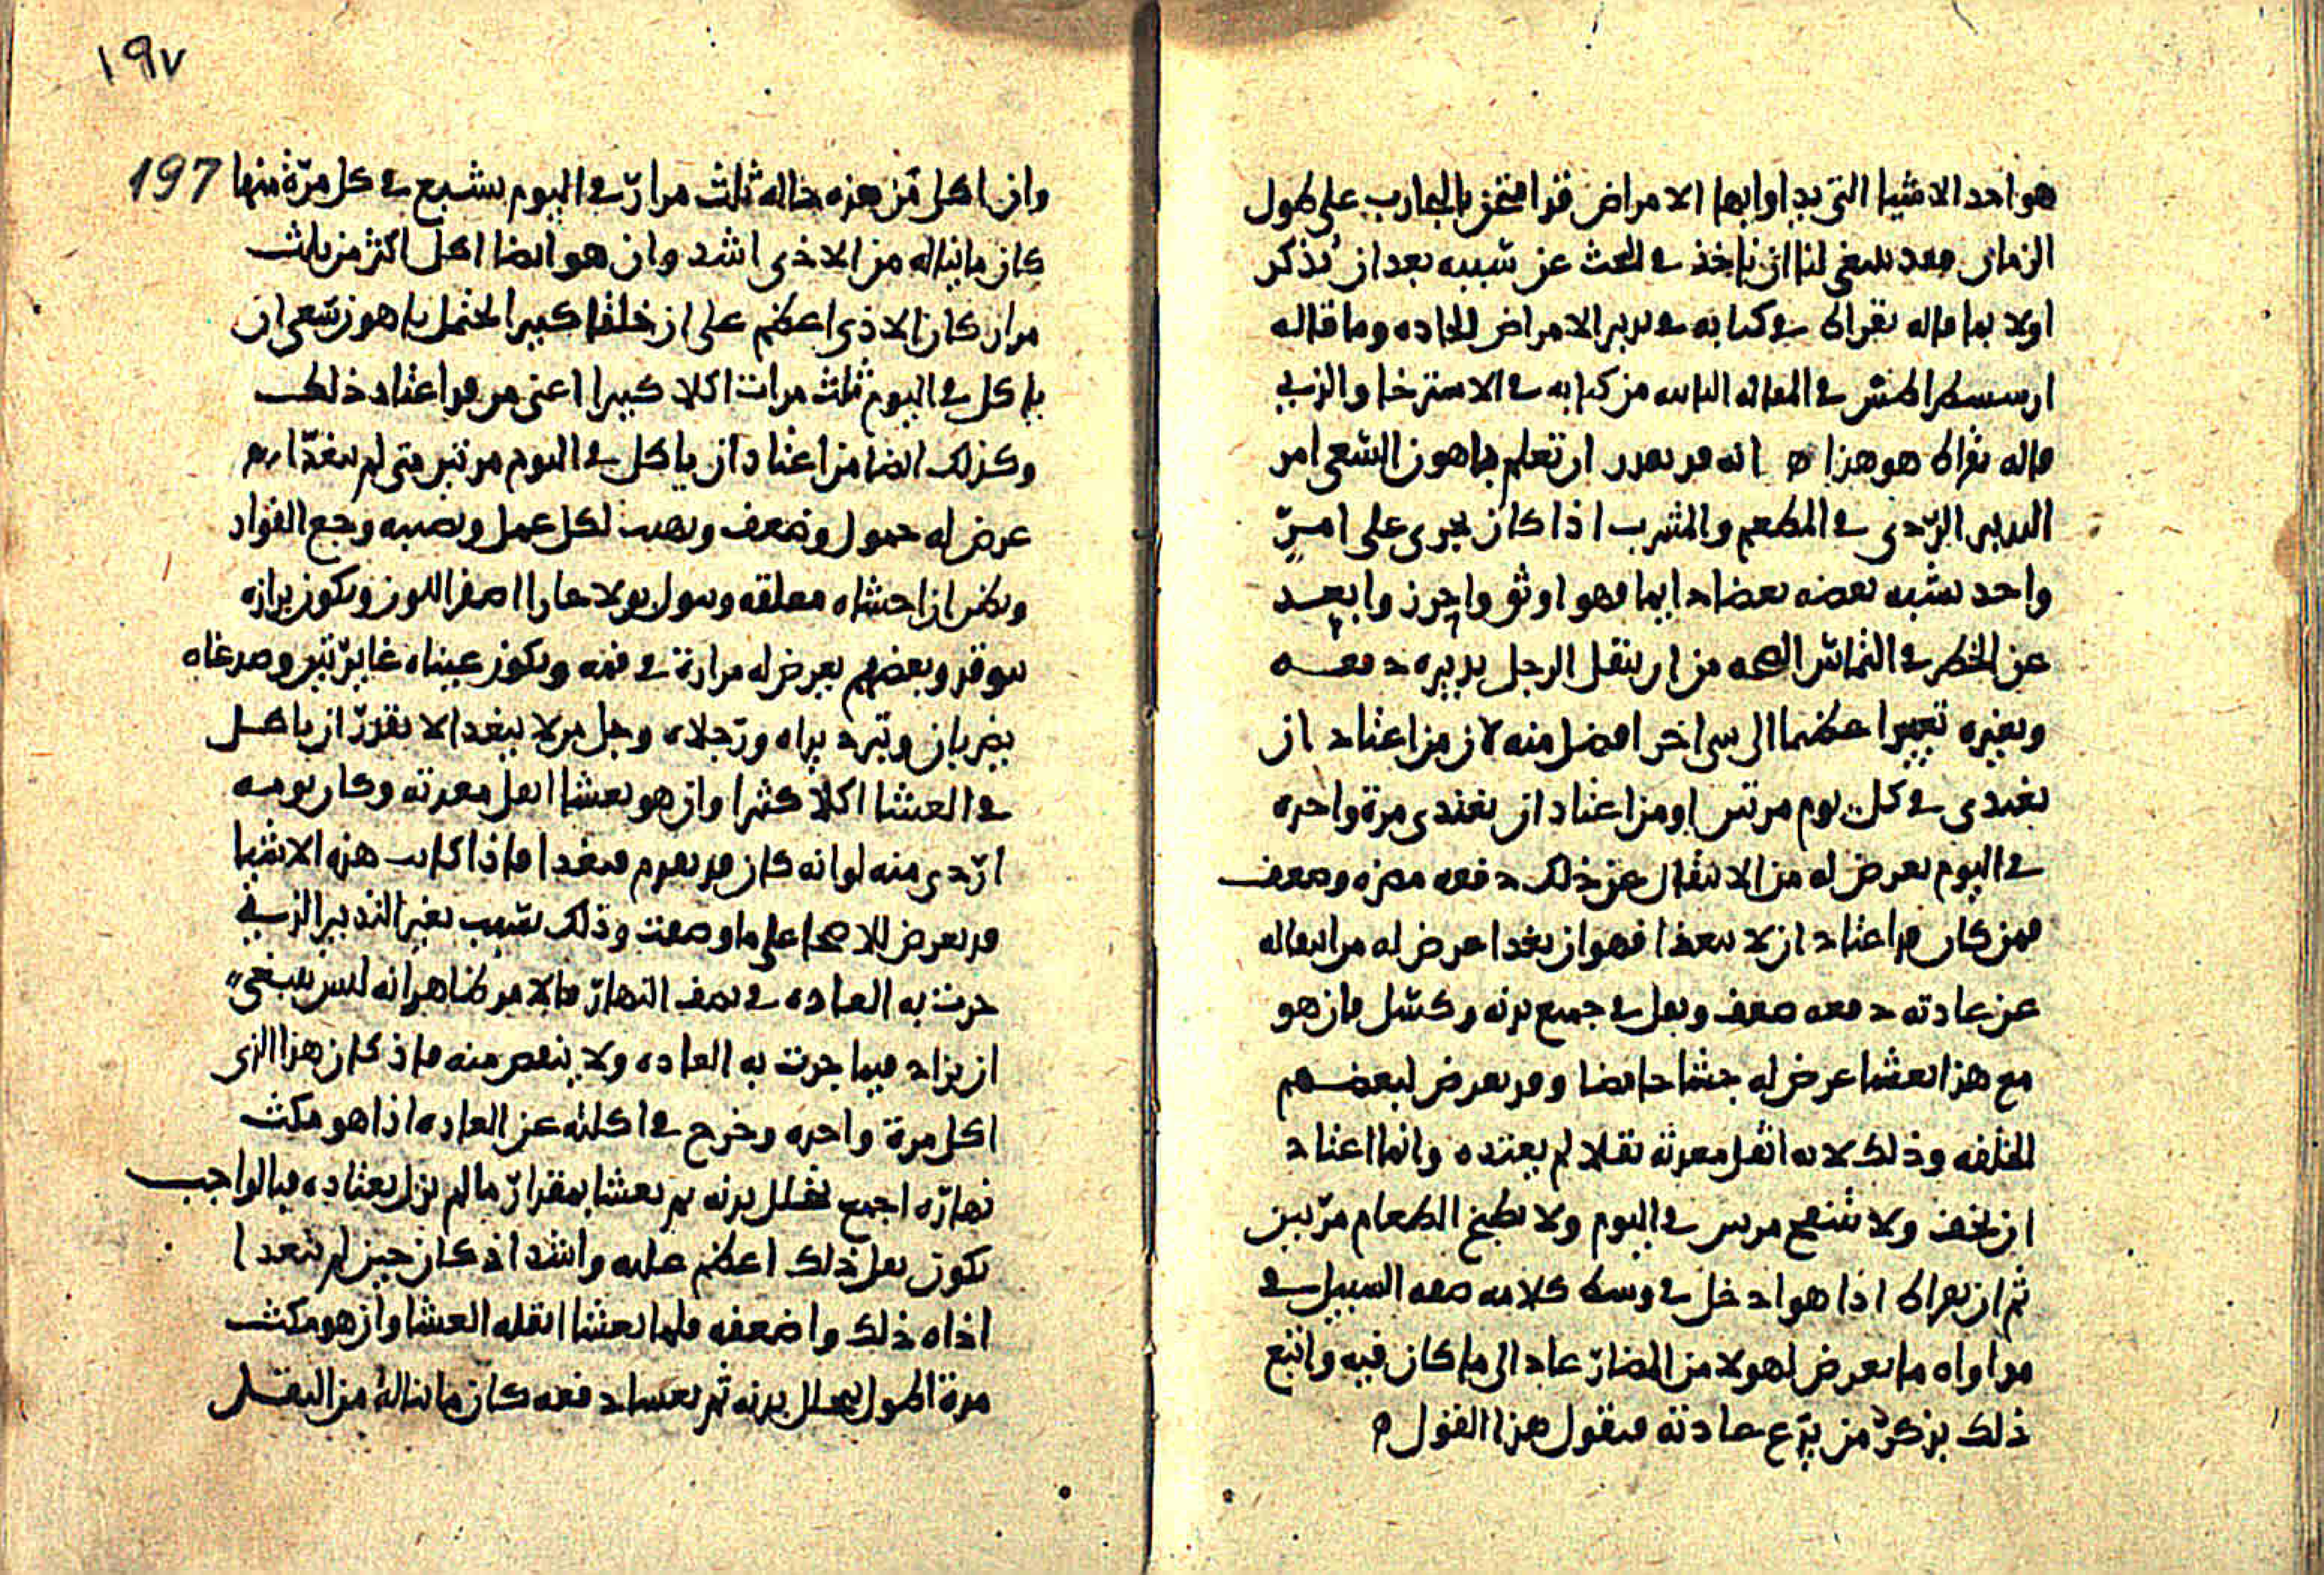 هو احد الاشيا التي يداوا بها الامراض قد امتحن بالتجارب على طول
الزمان وقد ينبغي لنا ان ناخذ في البحث عن سببه بعد ان نذكر
اولا بما قاله بقراط في كتابه في تدبير الامراض الحاده وما قاله
ارسسطراطس في المقاله الثانيه من كتابه في الاسترخا والذي
قاله بقراط هو هذا ه انه قد يقدر ان تعلم باهون السعي امر
التدبير الردي في المطعم والمشرب اذا كان يجري على امر
واحد يشبه بعضه بعضا دايما فهو اوثق واحرز وابعد
عن الخطر في التماس الصحه من ان ينقل الرجل تدبيره دفعه
ويغيره تغييرا عظيما الى شي اخر افضل منه لان من اعتاد ان
يغتدي في كل يوم مرتين او من اعتاد ان يغتدي مرة واحده
في اليوم يعرض له من الانتقال عن ذلك دفعه مضره وضعف
فمن كان قد اعتاد ان لا يتغذا فهو ان تغدا عرض له من انتقاله
عن عادته دفعه ضعف وثقل في جميع بدنه وكسل فان هو
مع هذا تعشا عرض له جشا حامضا وقد يعرض لبعضهم
الخلفه وذلك لانه اثقل معدته ثقلا لم يعتده وانما اعتاد
ان تخف ولا تنتفخ مرتين في اليوم ولا تطبخ الطعام مرتين
ثم ان بقراط اذا هو ادخل في وسط كلامه صفه السبيل في
مداواه ما يعرض لهولا من المضار عاد الى ما كان فيه واتبع
ذلك بذكر من يدع عادته فيقول هذا القول ه
١٩٧
197
وان اكل من هذه حاله ثلث مرار في اليوم يشبع في كل مرة منها
كان ما يناله من الاذى اشد وان هو ايضا اكل اكثر من ثلث
مرار كان الاذى اعظم على ان خلقا كبيرا يحتمل باهون سعي ان
ياكل في اليوم ثلث مرات اكلا كبيرا اعني من قد اعتاد ذلك
وكذلك ايضا من اعتاد ان ياكل في اليوم مرتين متى لم يتغدا
عرض له خمول وضعف وتهيب لكل عمل ويصيبه وجع الفواد
ويظن ان احشاه معلقه ويبول بولا حارا اصفر اللون ويكون برازه
يتوقد وبعضهم يعرض له مرارة في فمه وتكون عيناه غايرتين وصدغاه
يضربان وتبرد يداه ورجلاه وجل من لا يتغدا لا يقدر ان ياكل
في العشا اكلا كثيرا وان هو تعشا اثقل معدته وكان نومه
اردى منه لو انه كان قد تقدم فتغدا فاذا كانت هذه الاشيا
قد تعرض للاصحا على ما وصفت وذلك بسبب تغير التدبير الذي
جرت به العاده في نصف النهار فالامر ظاهر انه ليس ينبغي
ان يزاد فيما جرت به العاده ولا ينقص منه فاذ كان هذا الذي
اكل مرة واحده وخرج في اكلته عن العاده اذا هو مكث
نهاره اجمع تحلل بدنه ثم تعشا بمقدار ما لم يزل يعتاده فبالواجب
يكون ثقل ذلك اعظم عليه واشد اذ كان حين لم يتغدا
اذاه ذلك واضعفه فلما تعشا اثقله العشا وان هو مكث
مدة اطول يتحلل بدنه ثم تعشا دفعه كان ما يناله من الثقل